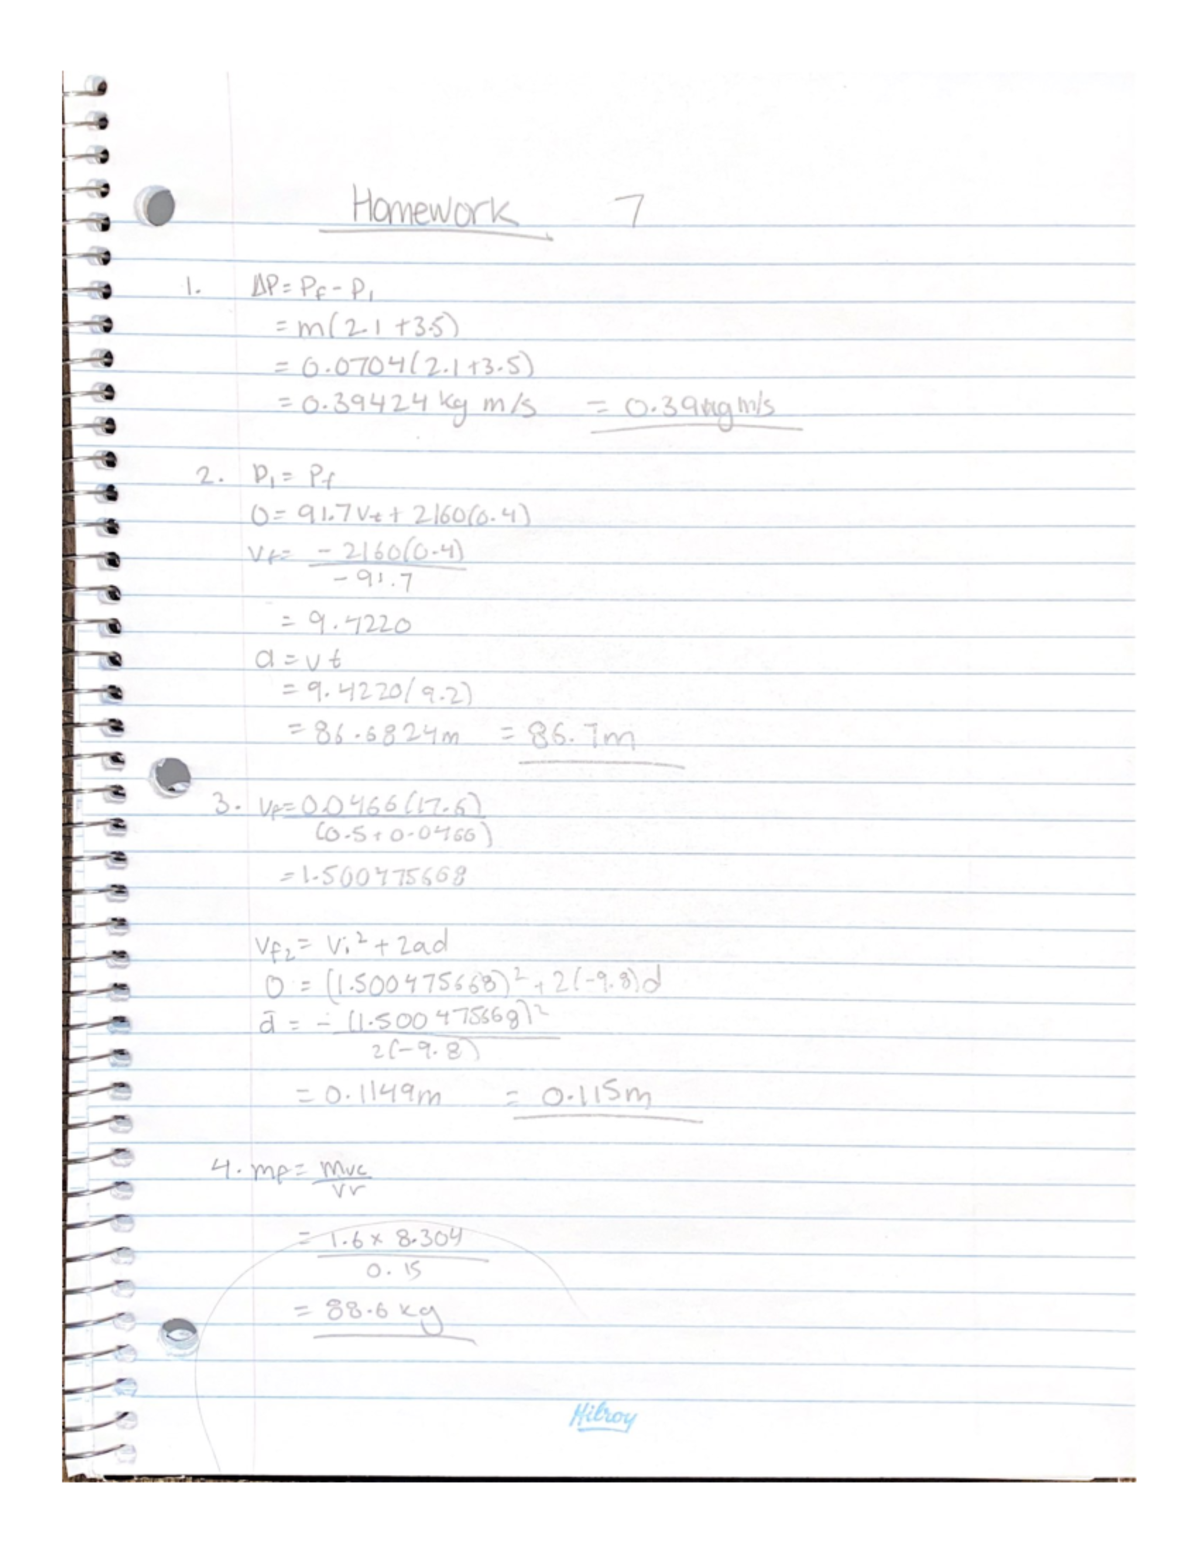 Homework 7
1. ΔP = Pf - P1
= m(2.1+3.5)
= 0.0704(2.1+3.5)
= 0.39424 kg m/s = 0.394kg m/s
2. P1 = Pf
0 = 91.7 Vt + 2160(0.4)
Vt = - 2160(0.4)
- 91.7
= 9.4220
d = v t
= 9.4220(9.2)
= 86.6824m = 86.7m
3. Vf = 0.0466(17.6)
(0.5+0.0466)
= 1.500475668
Vf2 = Vi² + 2ad
0 = (1.500475668)² + 2(-9.8)d
d = - (1.500475668)²
2(-9.8)
= 0.1149m = 0.115m
4. mp = mvc
vr
= 1.6 x 8.304
0.15
= 88.6 kg
Hilroy